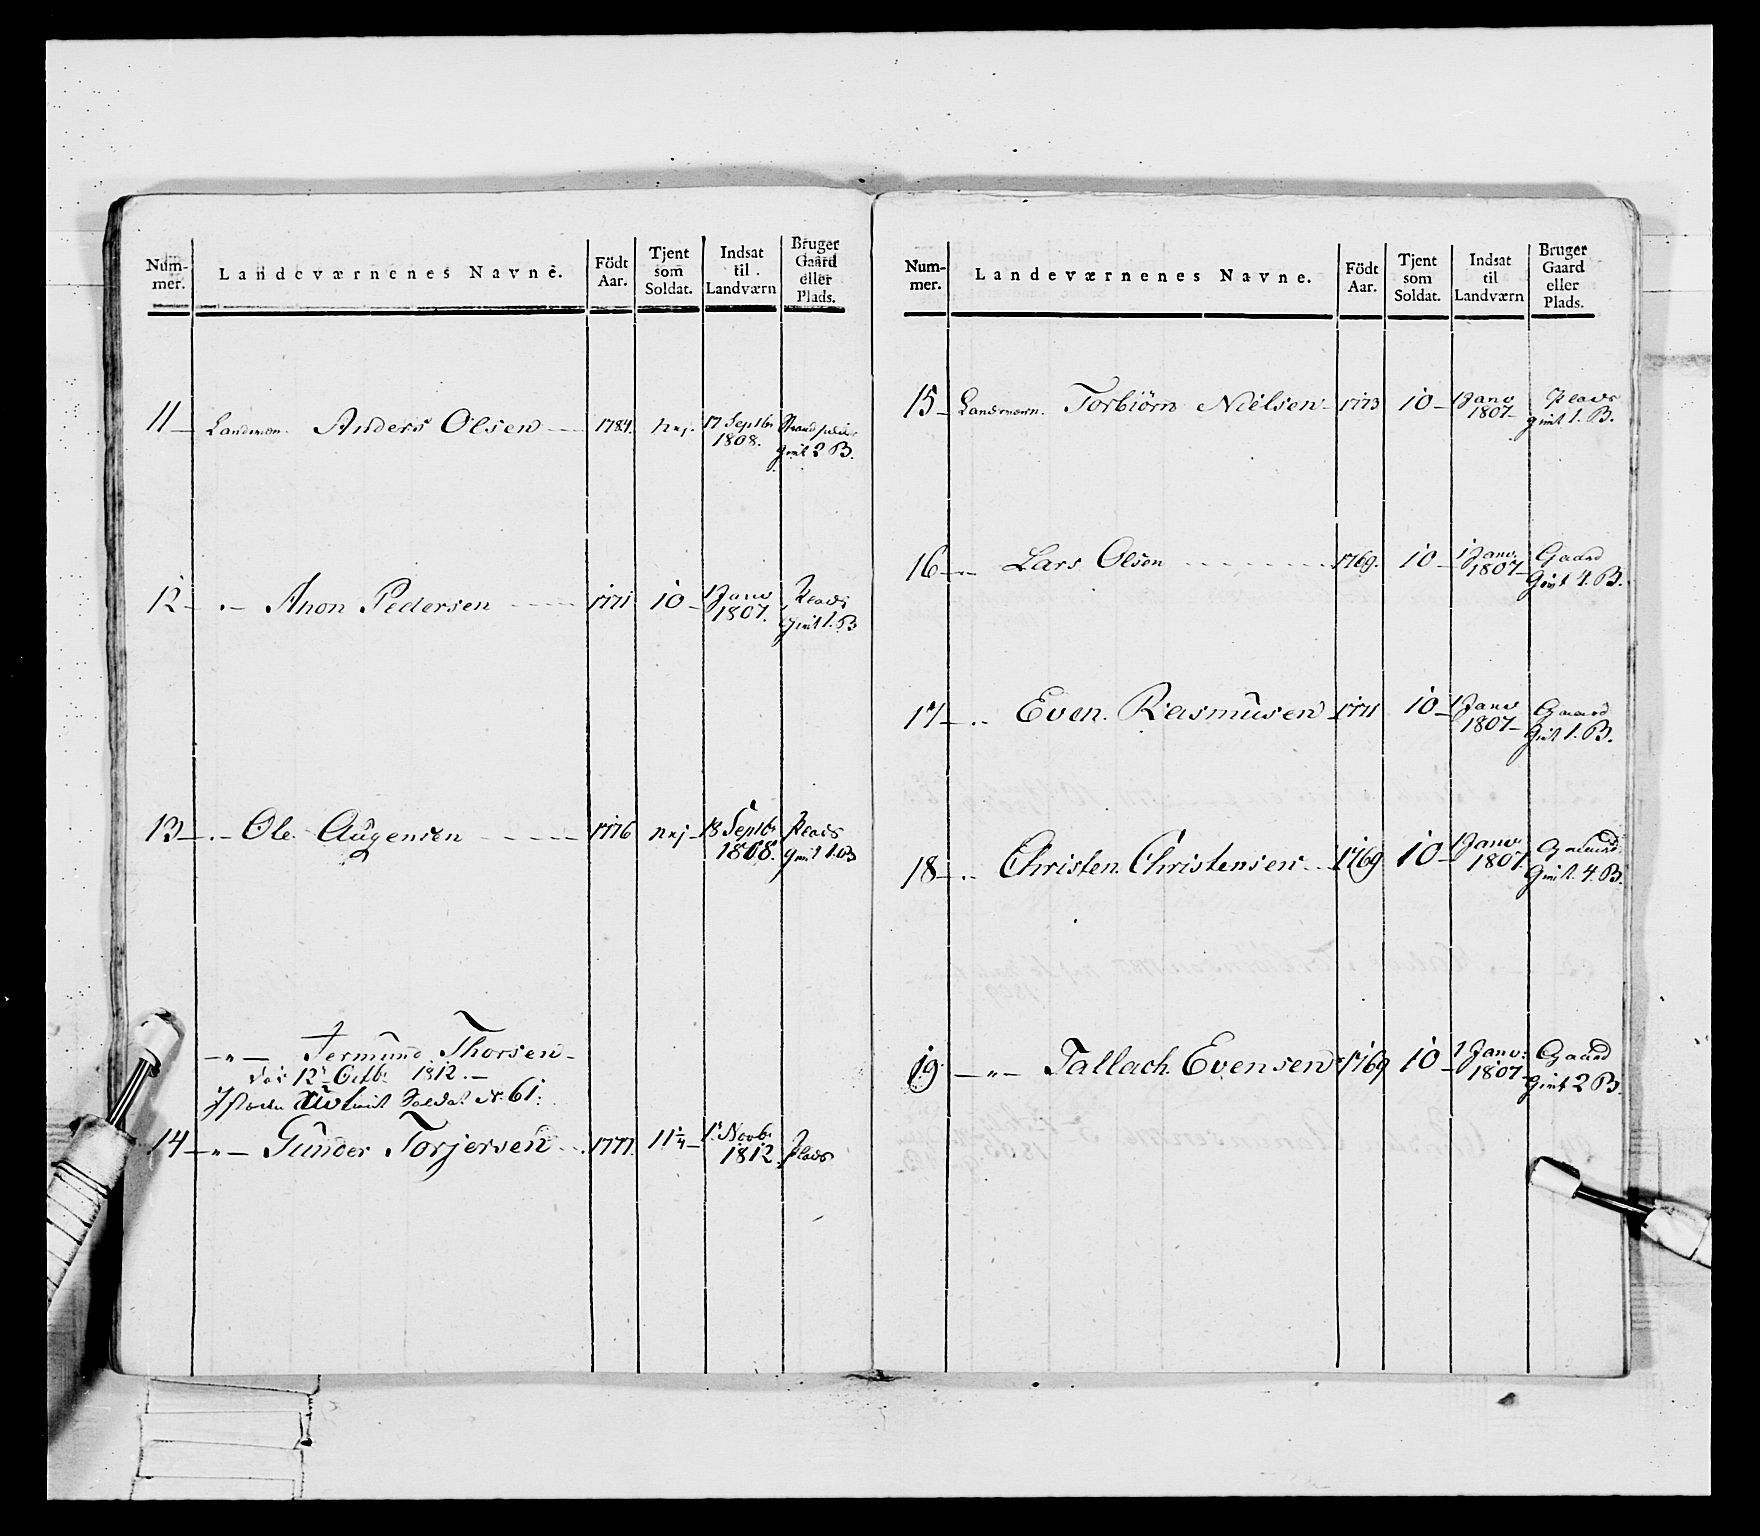 Num-
mer.
Landeværnenes Navne.
Födt
Aar.
Tjent
som
Soldat.
Indsat
til
Landværn
Bruger
Gaard
eller
Plads.
11 Landværn. Anders Olsen 1784. nej. 17 Septbr
1808.
givt 2 B.
12 " Anon Pedersen 1771 10 1 Janv
1807. Plads
givt 1. B
13 " Ole Augensen 1776 nej 18 Septbr
1808. Plads
givt 1. B
" Termund Thorsen
12 Octbr 1812.
Soldat No 61:
14 " Gunder Torjersen 1777. 11 1/4 1 Novbr
1812 Plads
Num-
mer.
Landeværnenes Navne.
Födt
Aar.
Tjent
som
Soldat.
Indsat
til
Landværn
Bruger
Gaard
eller
Plads.
15 Landværn. Torbiörn Nielsen 1773 10 1 Janv
1807 Plads
givt 1. B.
16 " Lars Olsen 1769. 10 1 Janv.
1807 Gaard
Givt 4. B.
17 " Even Rasmusen 1771 10 1 Janv
1807 Gaard
Givt 1. B.
18 " Christen Christensen 1769 10 1 Janv.
1807. Gaard
Givt. 4. B.
19 " Tallach Evensen 1769 10 1 Janv:
1807 Gaard
Givt 2 B.